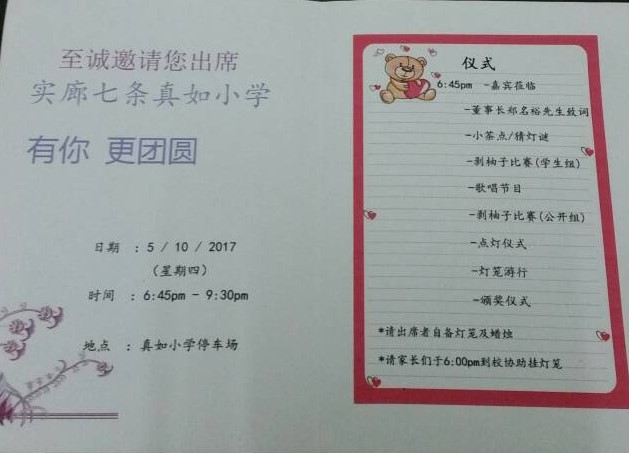 至诚邀请您出席
实廊七条真如小学
有你 更团圆
日期 : 5 / 10 / 2017
(星期四)
时间 : 6:45pm - 9:30pm
地点 : 真如小学停车场
仪式
6:45pm -嘉宾莅临
-董事长郑名裕先生致词
-小茶点/猜灯谜
-剥柚子比赛(学生组)
-歌唱节目
-剥柚子比赛(公开组)
-点灯仪式
-灯笼游行
-颁奖仪式
*请出席者自备灯笼及蜡烛
*请家长们于6:00pm到校协助挂灯笼